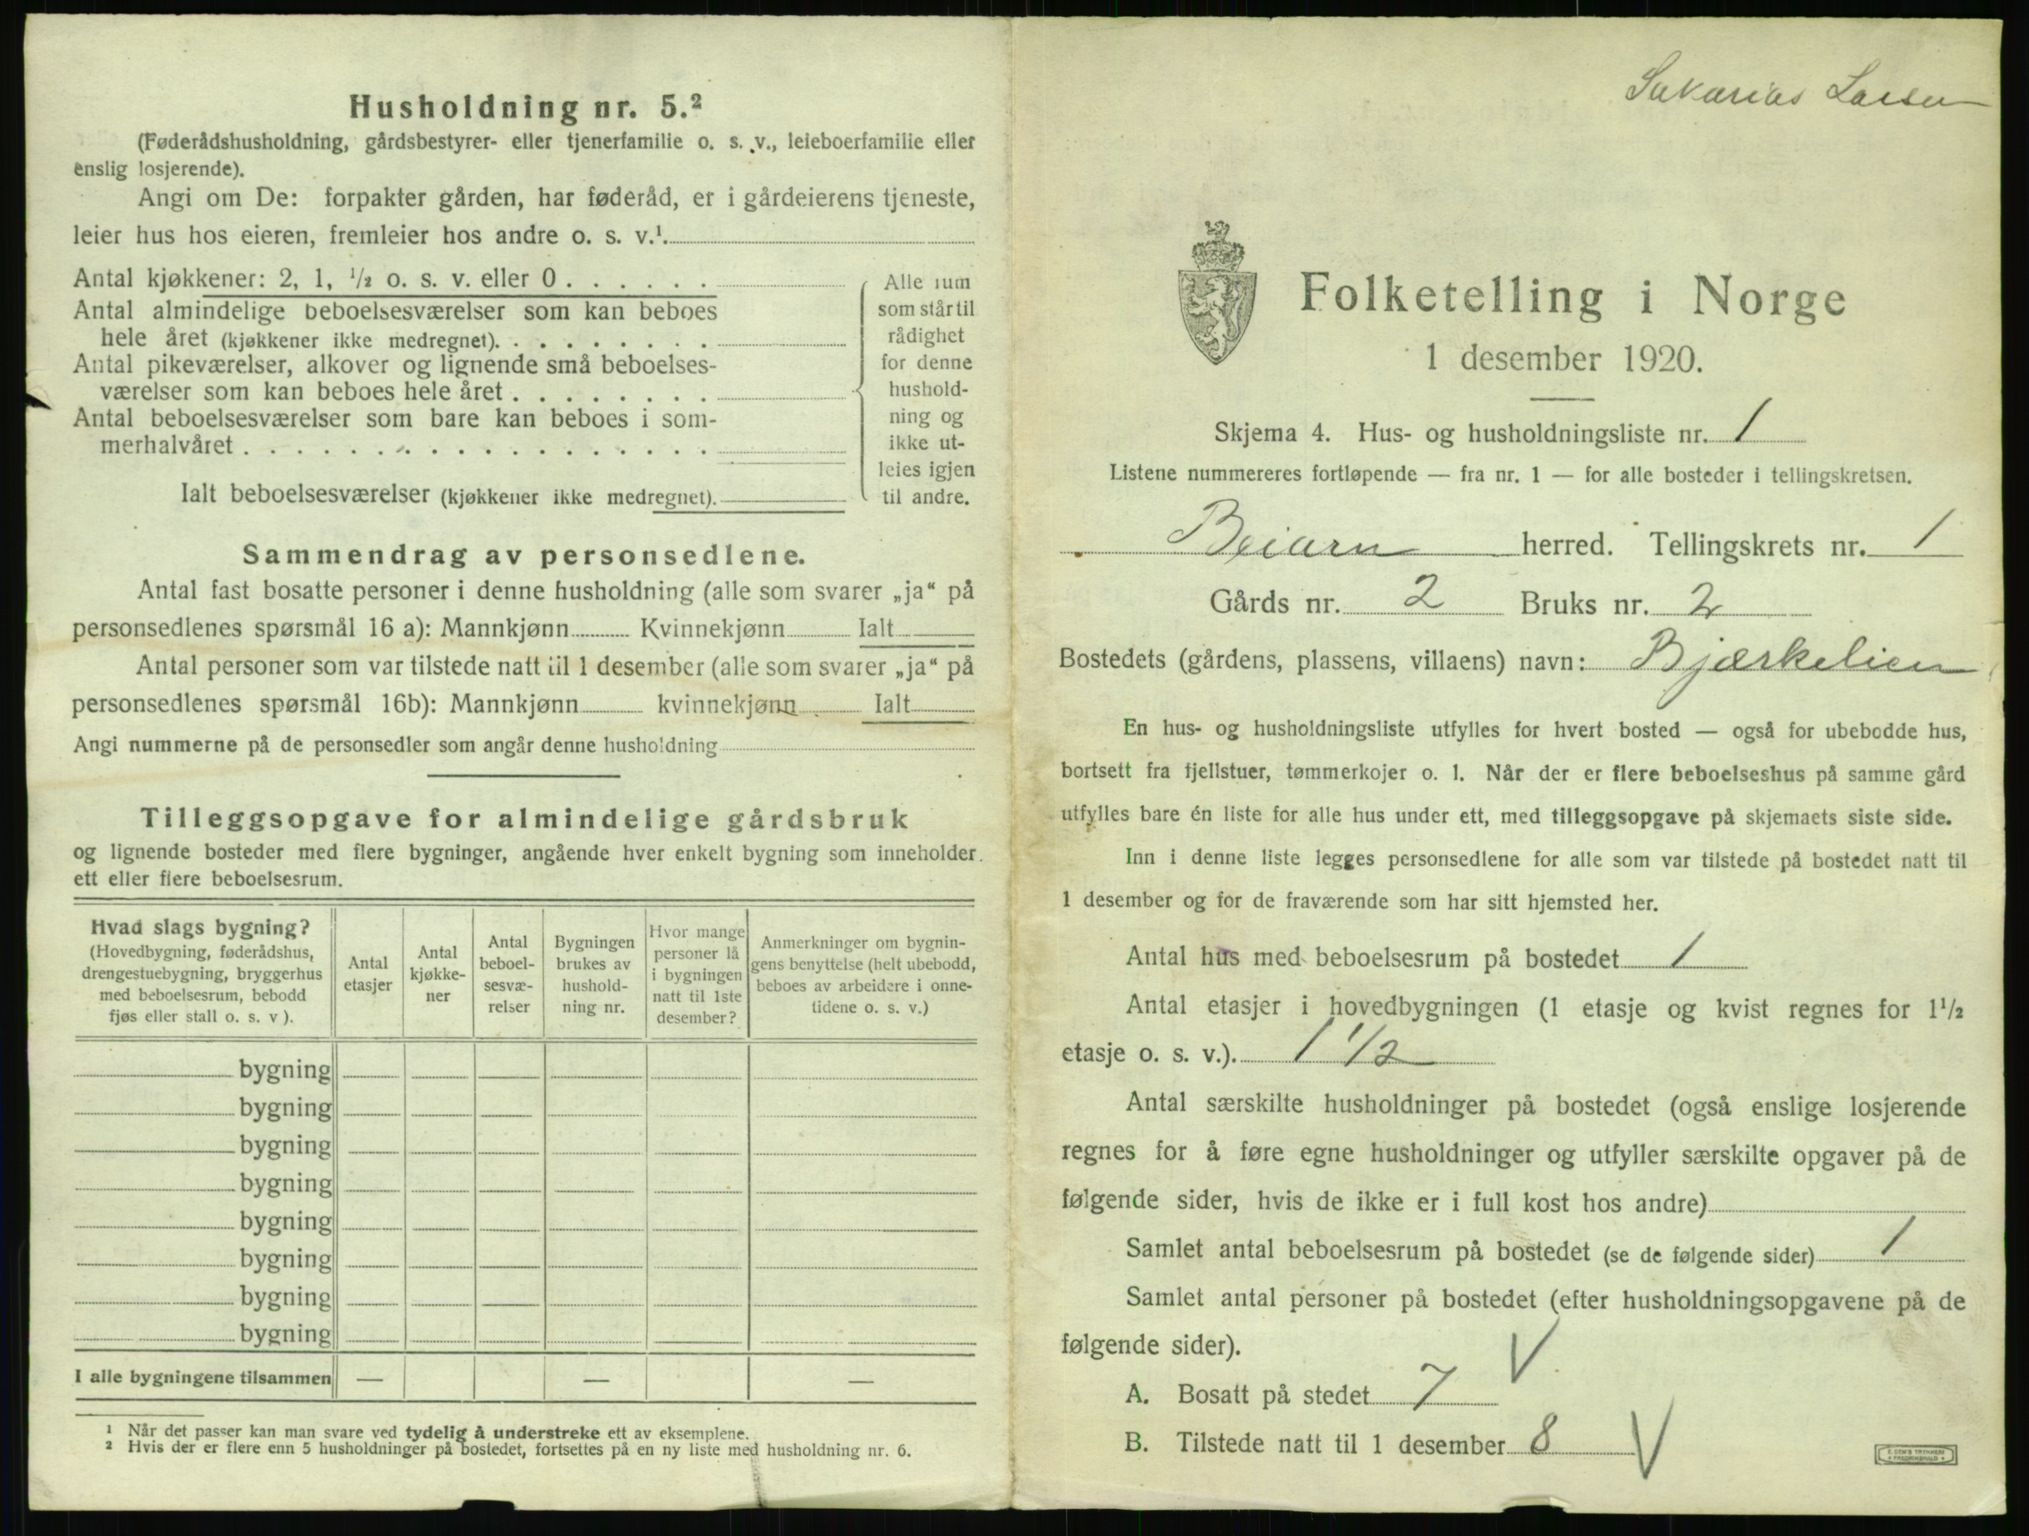 Husholdning nr. 5.²
(Føderådshusholdning, gårdsbestyrer- eller tjenerfamilie o. s. v., leieboerfamilie eller
enslig losjerende).
Angi om De: forpakter gården, har føderåd, er i gårdeierens tjeneste,
leier hus hos eieren, fremleier hos andre o. s. v.¹.
Antal kjøkkener: 2, 1, ½ o. s. v. eller 0 . . . . . .
Antal almindelige beboelsesværelser som kan beboes
hele året (kjøkkener ikke medregnet). . . . . . . . .
Antal pikeværelser, alkover og lignende små beboelses-
værelser som kan beboes hele året . . . . . . . .
Antal beboelsesværelser som bare kan beboes i som-
merhalvåret . . . . . . . . . . . . . . . . . .
Ialt beboelsesværelser (kjøkkener ikke medregnet).
Alle rum
som står til
rådighet
for denne
hushold-
ning og
ikke ut-
leies igjen
til andre.
Sammendrag av personsedlene.
Antal fast bosatte personer i denne husholdning (alle som svarer „ja“ på
personsedlenes spørsmål 16 a): Mannkjønn Kvinnekjønn Ialt
Antal personer som var tilstede natt til 1 desember (alle som svarer „ja“ på
personsedlenes spørsmål 16b): Mannkjønn kvinnekjønn Ialt
Angi nummerne på de personsedler som angår denne husholdning
Tilleggsopgave for almindelige gårdsbruk
og lignende bosteder med flere bygninger, angående hver enkelt bygning som inneholder
ett eller flere beboelsesrum.
Hvad slags bygning?
(Hovedbygning, føderådshus,
drengestuebygning, bryggerhus
med beboelsesrum, bebodd
fjøs eller stall o. s. v ).
Antal
etasjer
Antal
kjøkke-
ner
Antal
beboel-
sesvæ-
relser
Bygningen
brukes av
hushold-
ning nr.
Hvor mange
personer lå
i bygningen
natt til 1ste
desember?
Anmerkninger om bygnin-
gens benyttelse (helt ubebodd,
beboes av arbeidere i onne-
tidene o. s. v.)
bygning
bygning
bygning
bygning
bygning
bygning
bygning
bygning
I alle bygningene tilsammen — — —
¹ Når det passer kan man svare ved tydelig å understreke ett av eksemplene.
² Hvis der er flere enn 5 husholdninger på bostedet, fortsettes på en ny liste med husholdning nr. 6.
Sakarias Larsen
Folketelling i Norge
1 desember 1920.
Skjema 4. Hus- og husholdningsliste nr. 1
Listene nummereres fortløpende — fra nr. 1 — for alle bosteder i tellingskretsen.
Beiarn herred. Tellingskrets nr. 1
Gårds nr. 2 Bruks nr. 2
Bostedets (gårdens, plassens, villaens) navn: Bjærkelien
En hus- og husholdningsliste utfylles for hvert bosted — også for ubebodde hus,
bortsett fra fjellstuer, tømmerkojer o. l. Når der er flere beboelseshus på samme gård
utfylles bare én liste for alle hus under ett, med tilleggsopgave på skjemaets siste side.
Inn i denne liste legges personsedlene for alle som var tilstede på bostedet natt til
1 desember og for de fraværende som har sitt hjemsted her.
Antal hus med beboelsesrum på bostedet 1
Antal etasjer i hovedbygningen (1 etasje og kvist regnes for 1½
etasje o. s. v.). 1 1/2
Antal særskilte husholdninger på bostedet (også enslige losjerende
regnes for å føre egne husholdninger og utfyller særskilte opgaver på de
følgende sider, hvis de ikke er i full kost hos andre)
Samlet antal beboelsesrum på bostedet (se de følgende sider) 1
Samlet antal personer på bostedet (efter husholdningsopgavene på de
følgende sider).
A. Bosatt på stedet 7 V
B. Tilstede natt til 1 desember 8 V